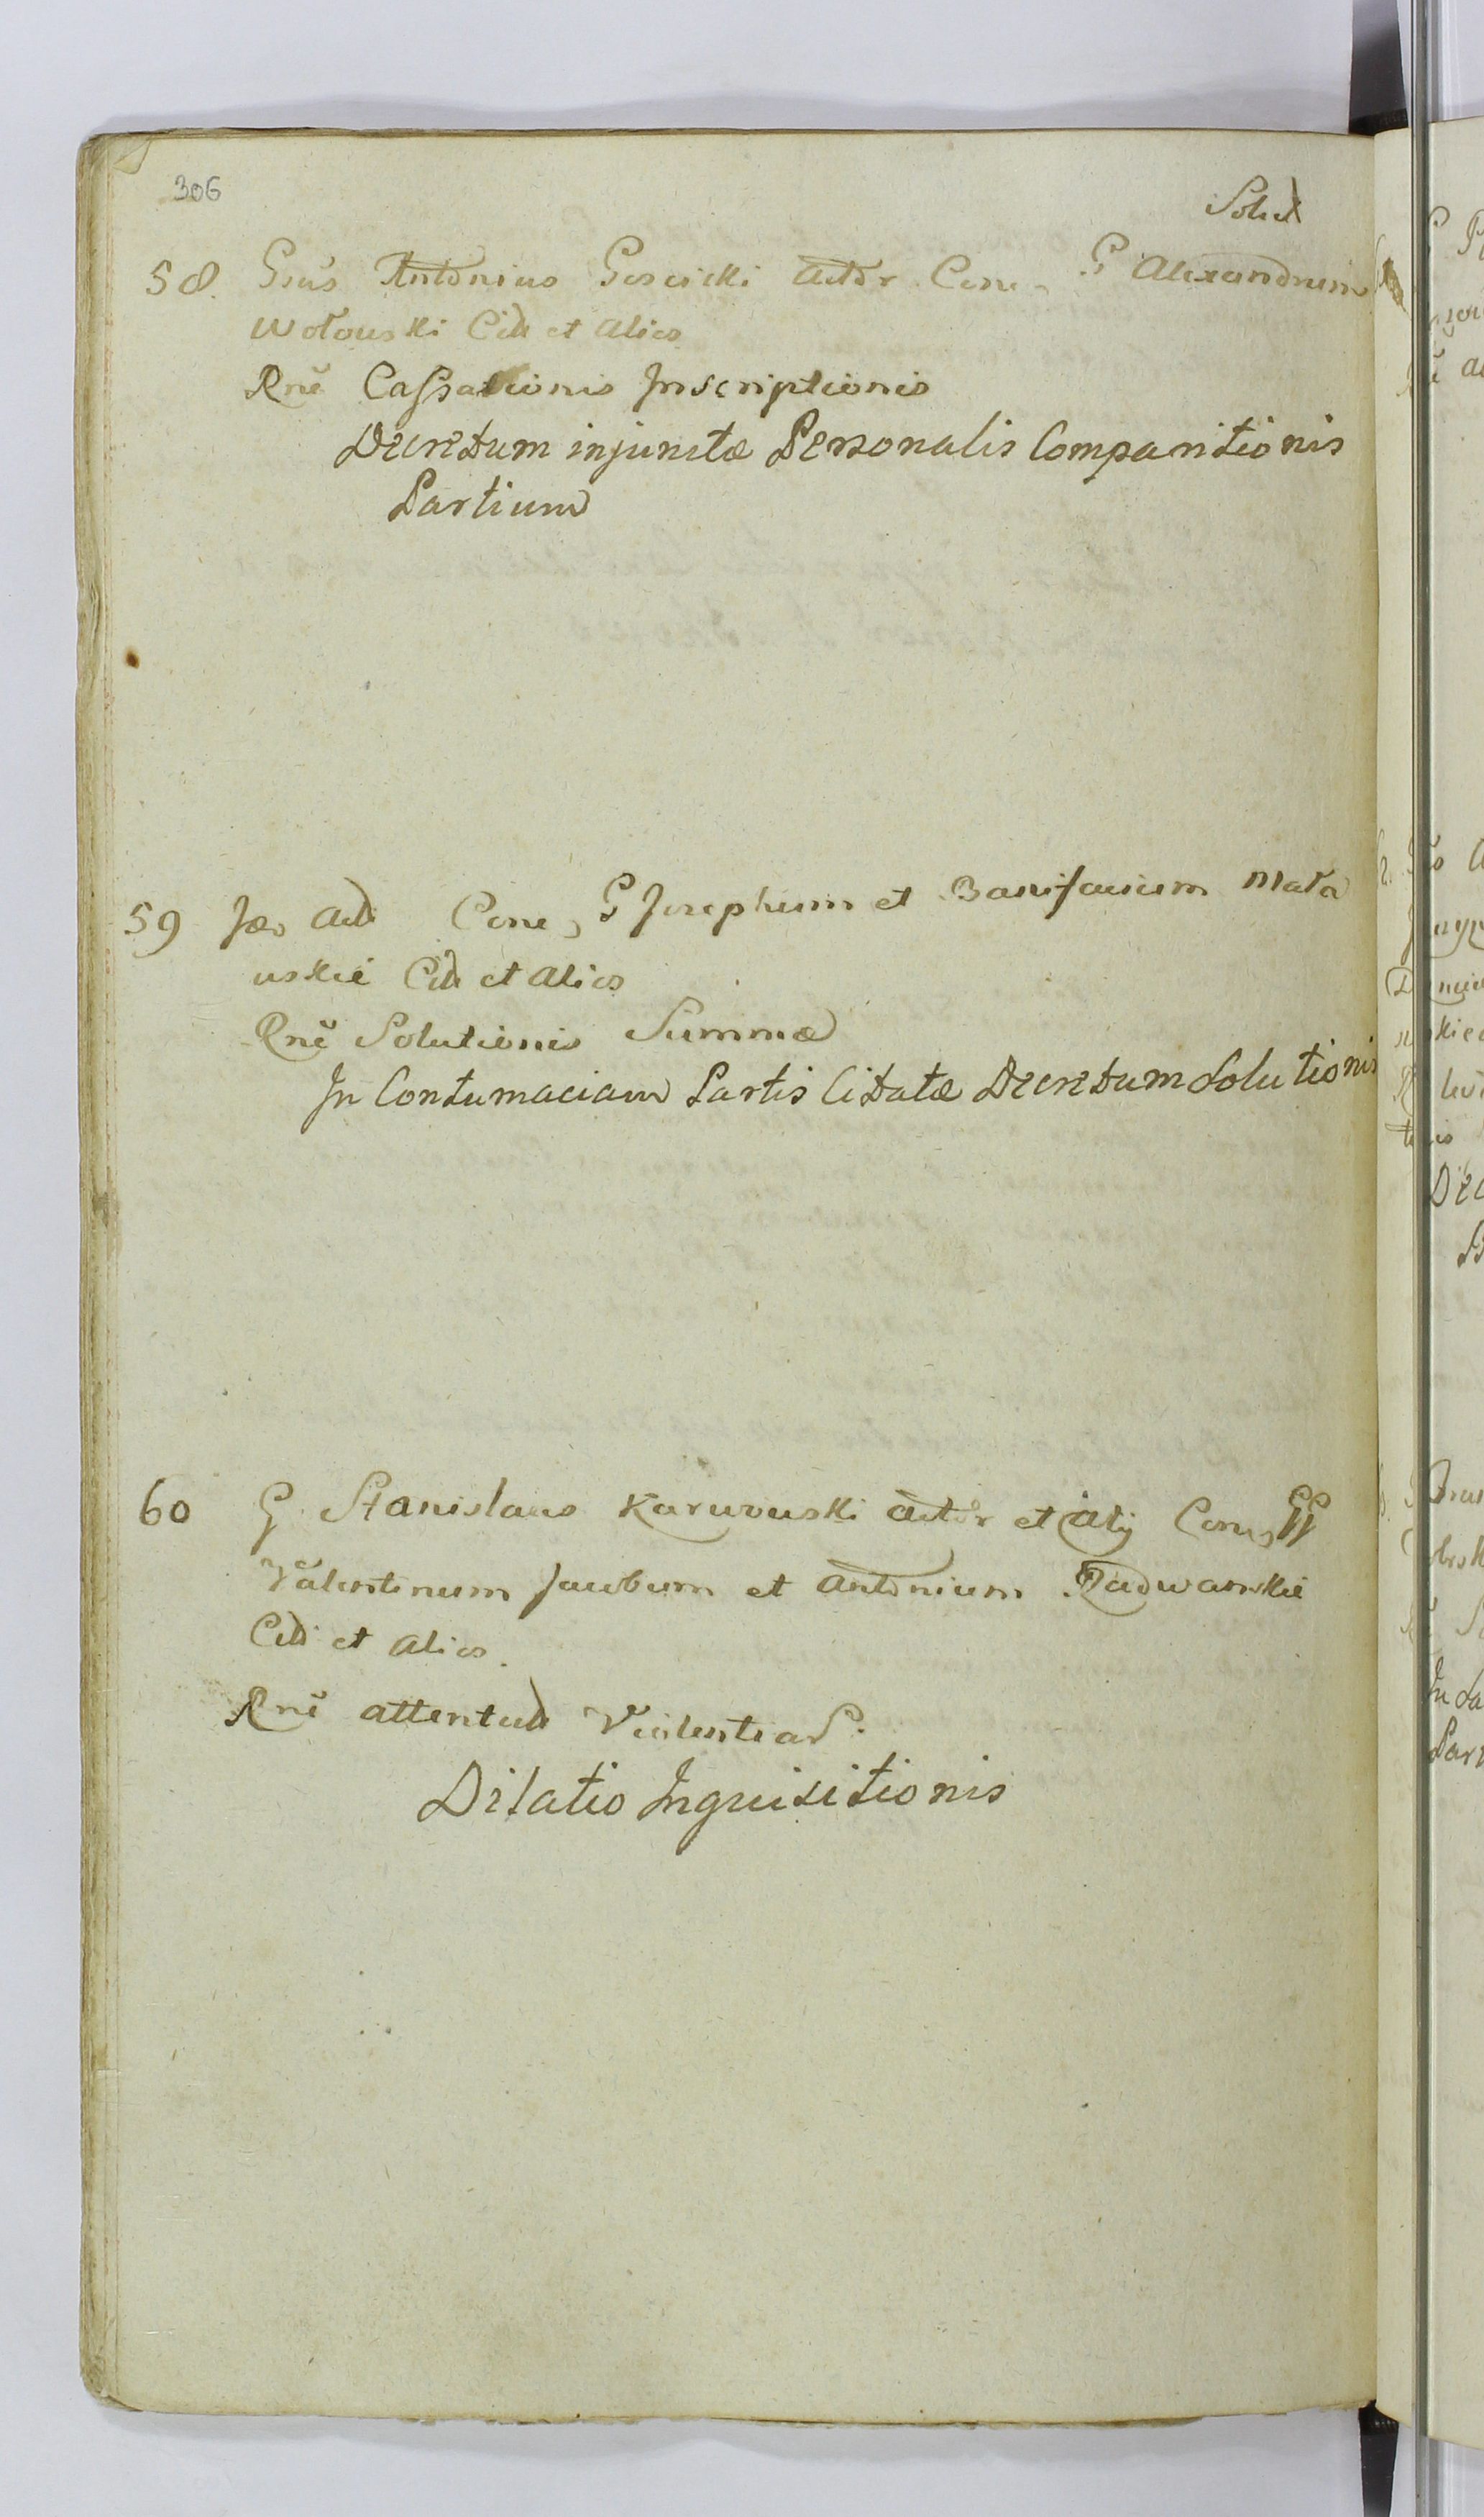 306
Solut
58. Gsus Antonius Goscicki Actor Cone, G Alexandrum
Wołowski Citt et Alios
Rnē Cassationis Inscriptionis
Decretum injunctæ Personalis Comparitionis
Partium
59 Act Cone, G Josephum et Bonifacium Mała
wskie Citt et Alios
Rnē Solutionis Summæ
In Contumaciam Partis Citatæ Decretum Solutionis
60 G. Stanislaus Karwowski Actor et Alij Cone, GG
Valentinum Jacobum et Antonium Radwanskie
Citt et Alios.
Rnē attentat Violentiar.
Dilatio Inquisitionis